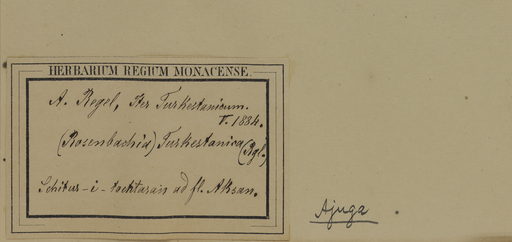 HERBARIUM REGIUM MONACENSE.
A. Regel, Iter Turkestanicum.
V. 1884.
(Rosenbachia) Turkestanica (Rgl.)
ad fl. Aksan.
Ajuga